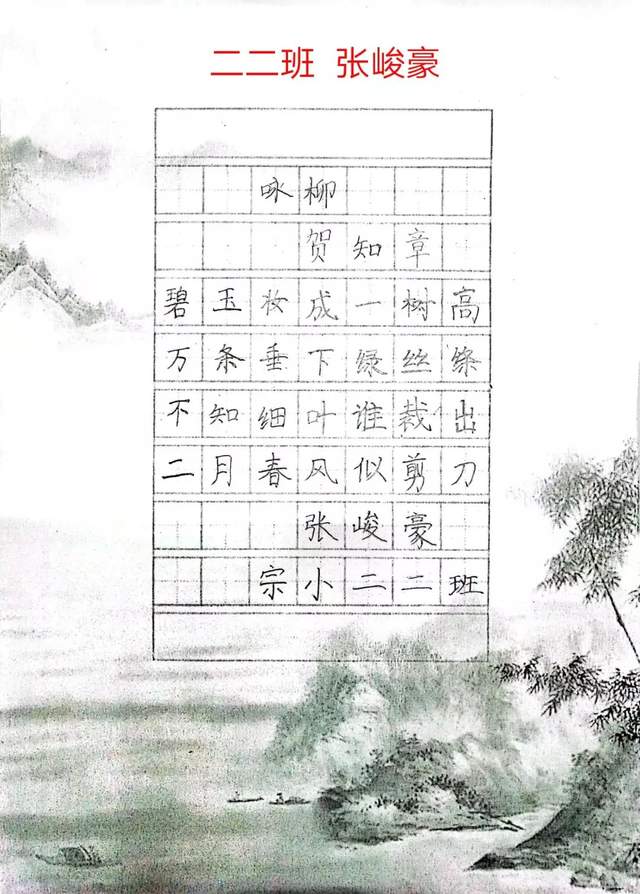 二二班 张峻豪
咏柳
贺知章
碧玉妆成一树高
万条垂下绿丝绦
不知细叶谁裁出
二月春风似剪刀
张峻豪
宗小二二班